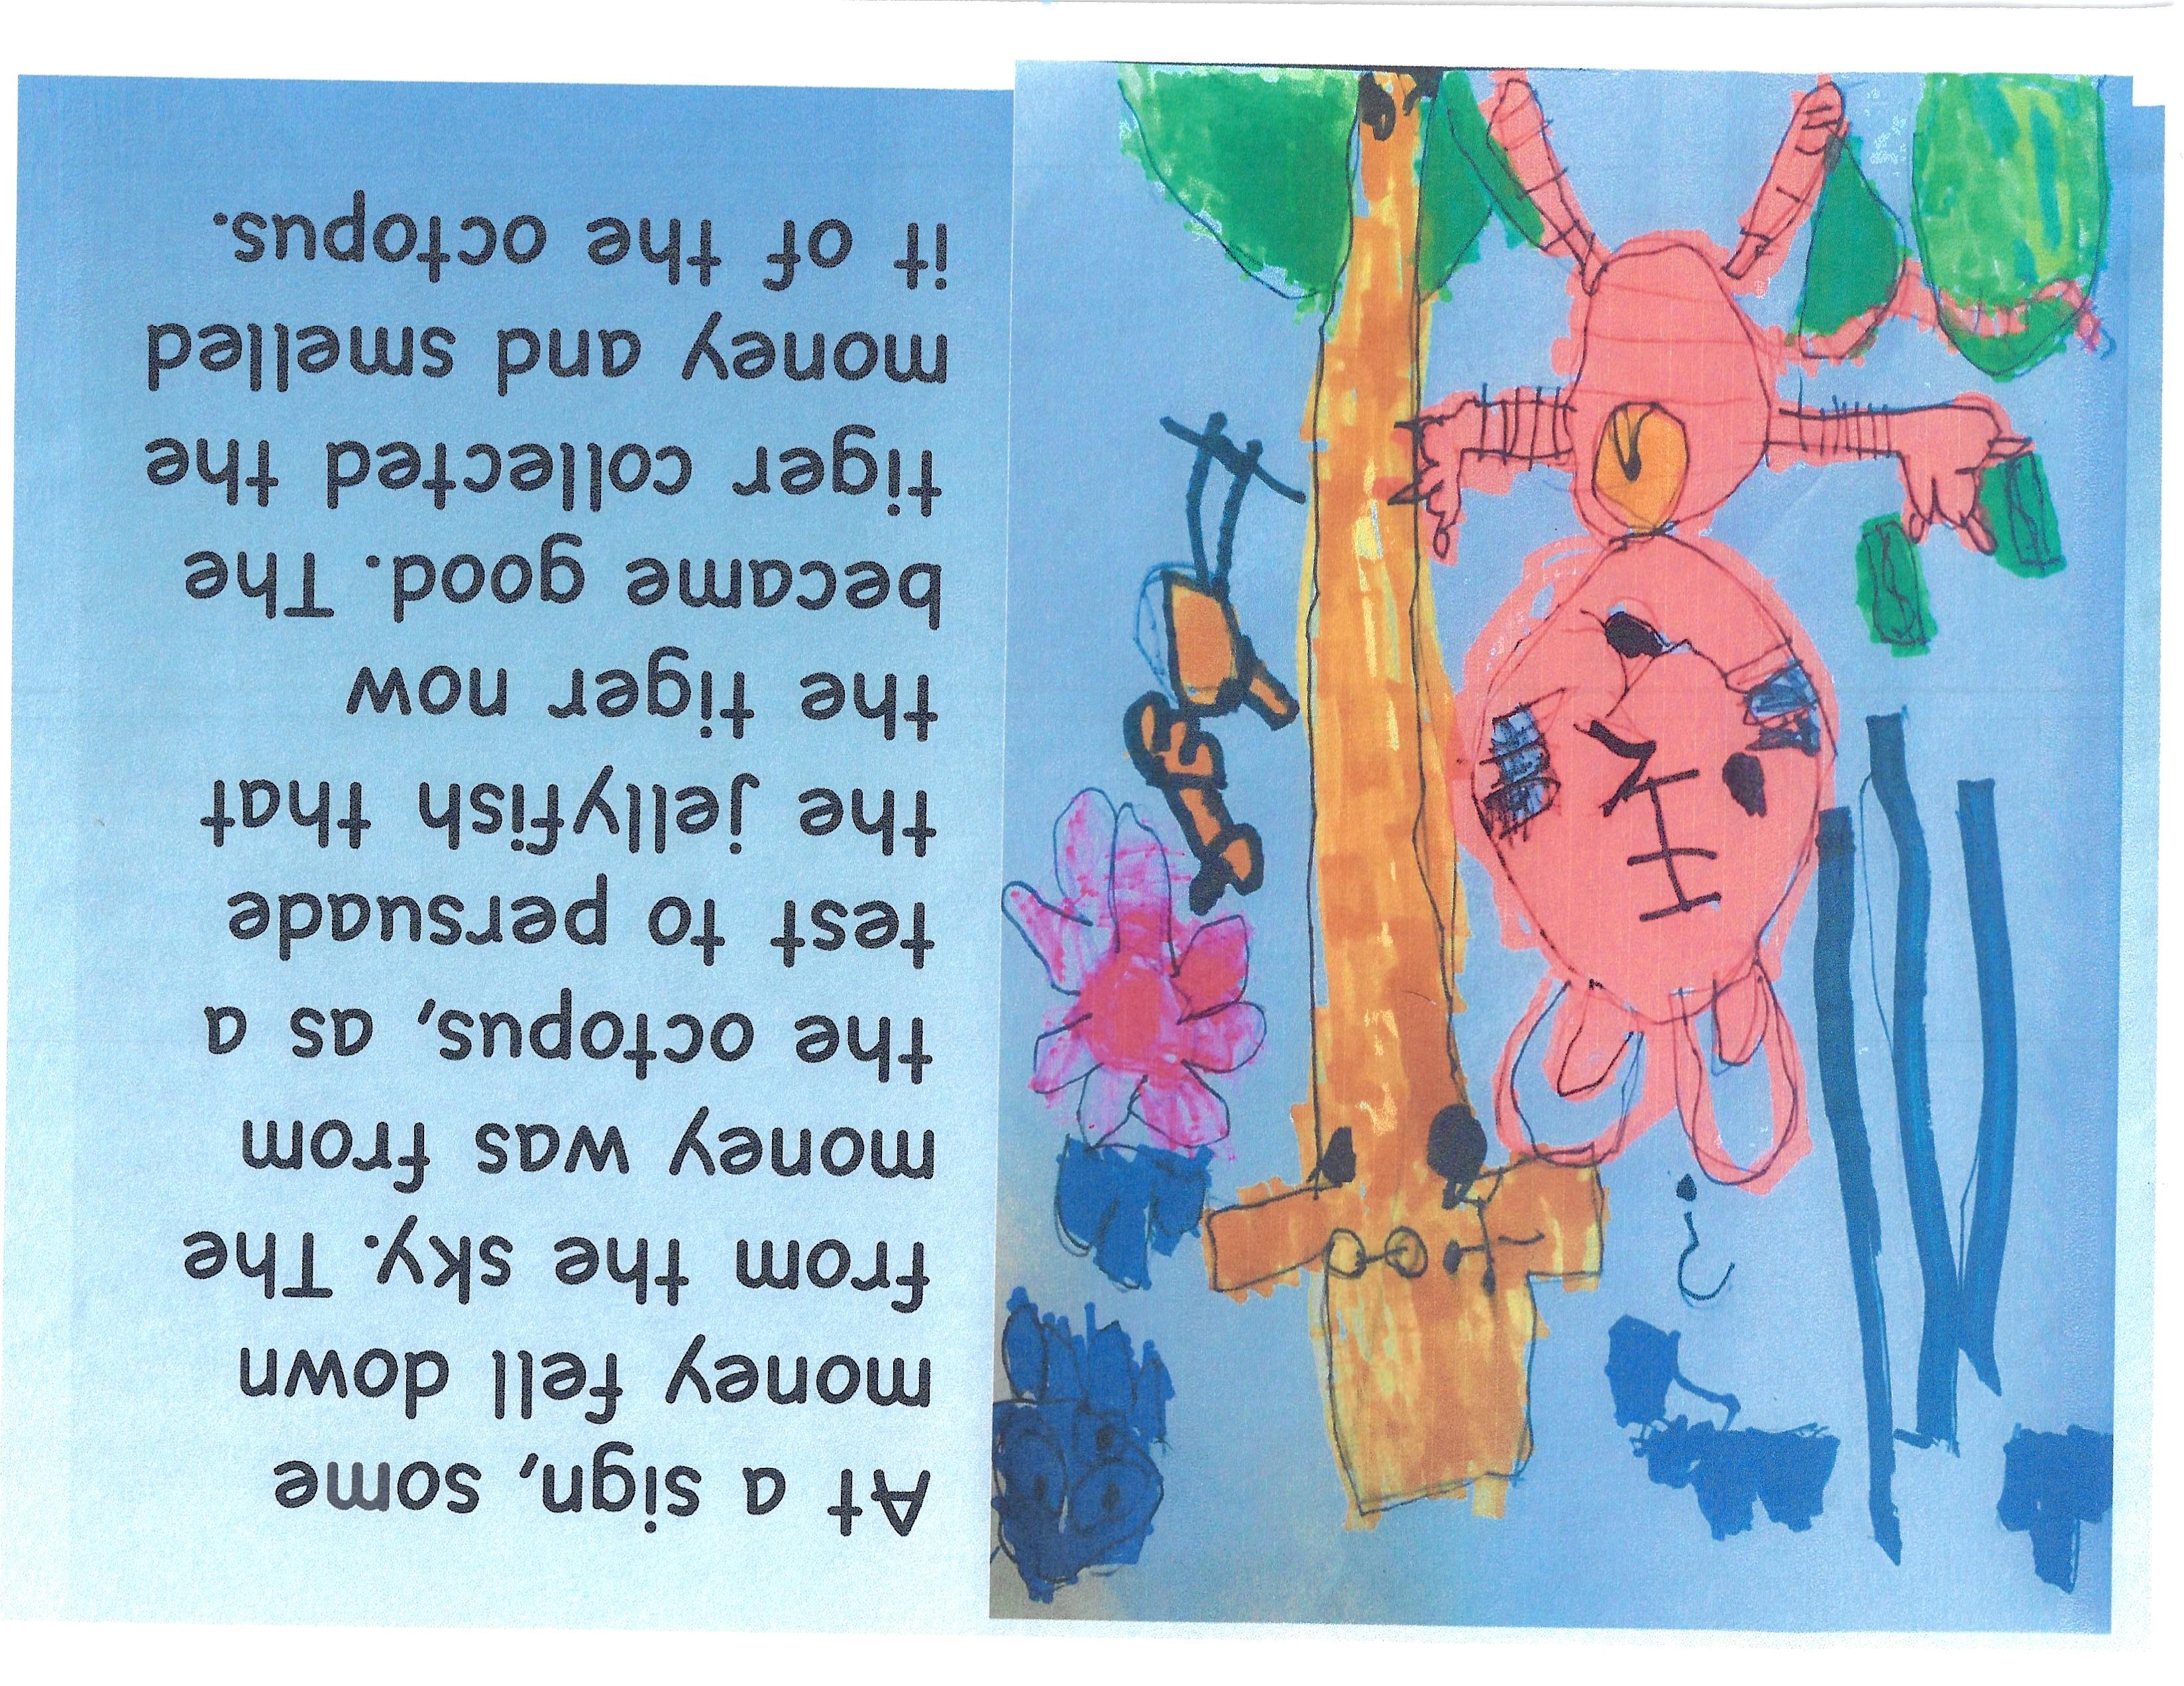 At a sign, some
money fell down
from the sky. The
money was from
the octopus, as a
test to persuade
the jellyfish that
the tiger now
became good. The
tiger collected the
money and smelled
it of the octopus.
?